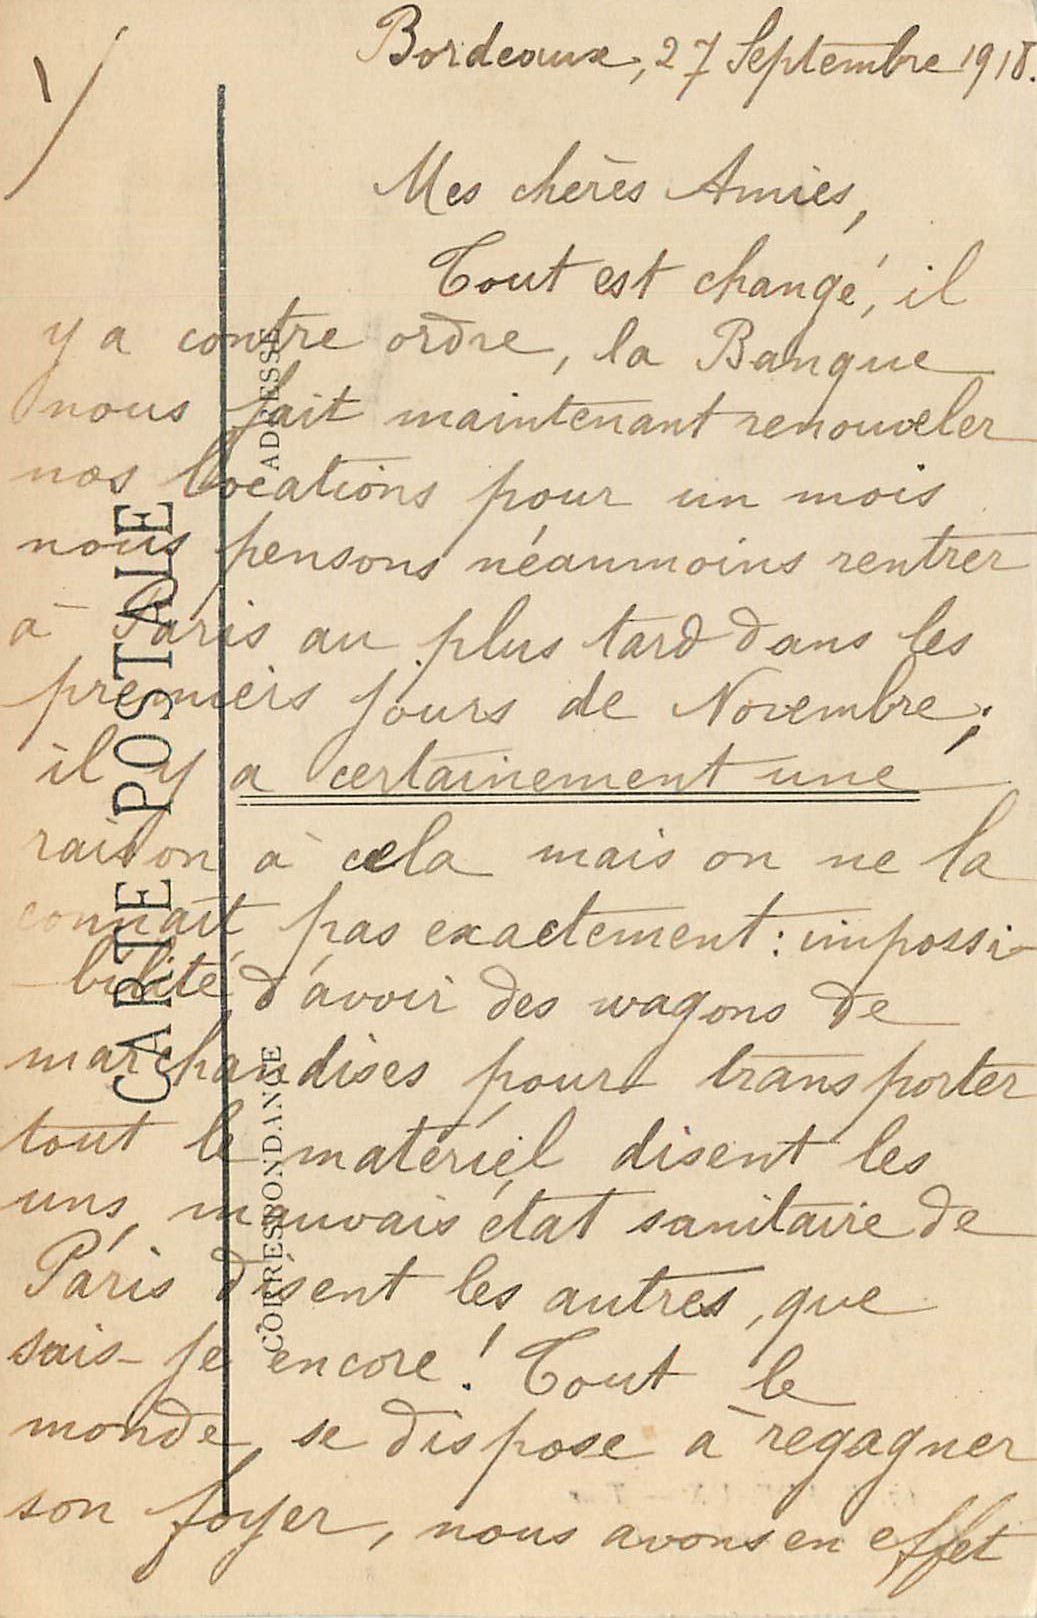 Bordeaux, 27 Septembre 1918.
Mes chères Amies,
Tout est changé, il
y a contre ordre, la Banque
nous fait maintenant renouveler
nos locations pour un mois
nous pensons néanmoins rentrer
à Paris au plus tard dans les
premiers jours de Novembre;
il y a certainement une
raison à cela mais on ne la
connaît pas exactement: impossi-
-bilité d'avoir des wagons de
marchandises pour transporter
tout le matériel disent les
uns, mauvais état sanitaire de
Paris disent les autres, que
sais-je encore! Tout le
monde se dispose à regagner
son foyer, nous avons en effet
CARTE POSTALE
ADRESSE
CORRESPONDANCE